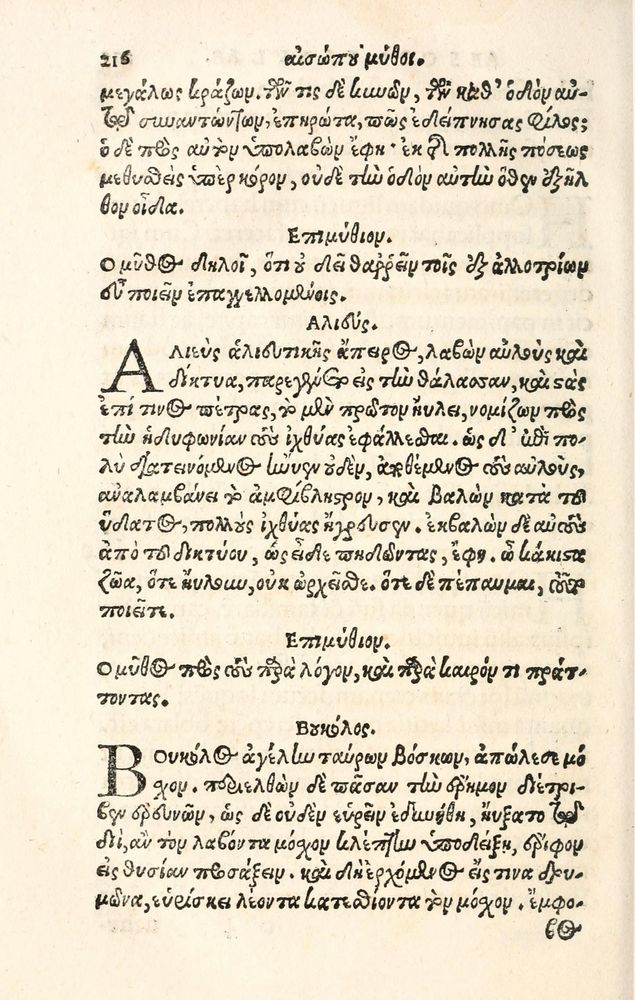 216 αἰσώπου μῦθοι.
μεγάλως κράζων. τῶν τις δὲ κυνῶν, τῶν καθ' ὁδὸν αὐ-
τῷ συναντώντων, ἐπηρώτα, πῶς ἐδείπνησας φίλος;
ὁ δὲ πρὸς αὐτὸν ὑπολαβὼν ἔφη· ἐκ τῆς πολλῆς πόσεως
μεθυσθεὶς ὑπὲρ κόρον, οὐδὲ τὴν ὁδὸν αὐτὴν ὅθεν ἐξῆλ
θον οἶδα.
Ἐπιμύθιον.
Ὁ μῦθος δηλοῖ, ὅτι οὐ δεῖ θαῤῥεῖν τοῖς ἐξ ἀλλοτρίων
εὖ ποιεῖν ἐπαγγελλομένοις.
Ἁλιεύς.
ΑΛιεὺς ἁλιευτικῆς ἄπειρος, λαβὼν αὐλοὺς καὶ
δίκτυα, παρεγένετο εἰς τὴν θάλασσαν, καὶ στὰς
ἐπί τινος πέτρας, τὸ μὲν πρῶτον ηὔλει, νομίζων πρὸς
τὴν ἡδυφωνίαν τοὺς ἰχθύας ἐφάλλεσθαι. ὡς δ' ἐπὶ πο-
λὺ διατεινόμενος ἤνυεν οὐδὲν, ἀποθέμενος τοὺς αὐλοὺς,
ἀναλαμβάνει τὸ ἀμφίβληστρον, καὶ βαλὼν κατὰ τοῦ
ὕδατος, πολλοὺς ἰχθύας ἤγρευσεν. ἐκβαλὼν δὲ αὐτοὺς
ἀπὸ τοῦ δικτύου, ὡς εἶδε πηδῶντας, ἔφη. ὦ κάκιστα
ζῶα, ὅτε ηὔλουν, οὐκ ὠρχεῖσθε. ὅτε δὲ πέπαυμαι, τοῦτο
ποιεῖτε.
Ἐπιμύθιον.
Ὁ μῦθος πρὸς τοὺς παρὰ λόγον, καὶ παρὰ καιρόν τι πράτ-
τοντας.
Βουκόλος.
ΒΟυκόλος ἀγέλην ταύρων βόσκων, ἀπώλεσε μό
χον. περιελθὼν δὲ πᾶσαν τὴν ἔρημον διέτρι-
βεν ἐρευνῶν, ὡς δὲ οὐδὲν εὑρεῖν ἐδυνήθη, ηὔξατο τῷ
διῒ, ἂν τὸν λαβόντα μόχον κλέπτην ὑποδείξῃ, ἔριφον
εἰς θυσίαν προσάξειν. καὶ δὴ ἐρχόμενος εἴς τινα δρυ-
μῶνα, εὑρίσκει λέοντα κατεσθίοντα τὸν μόχον. ἔμφο-
βος